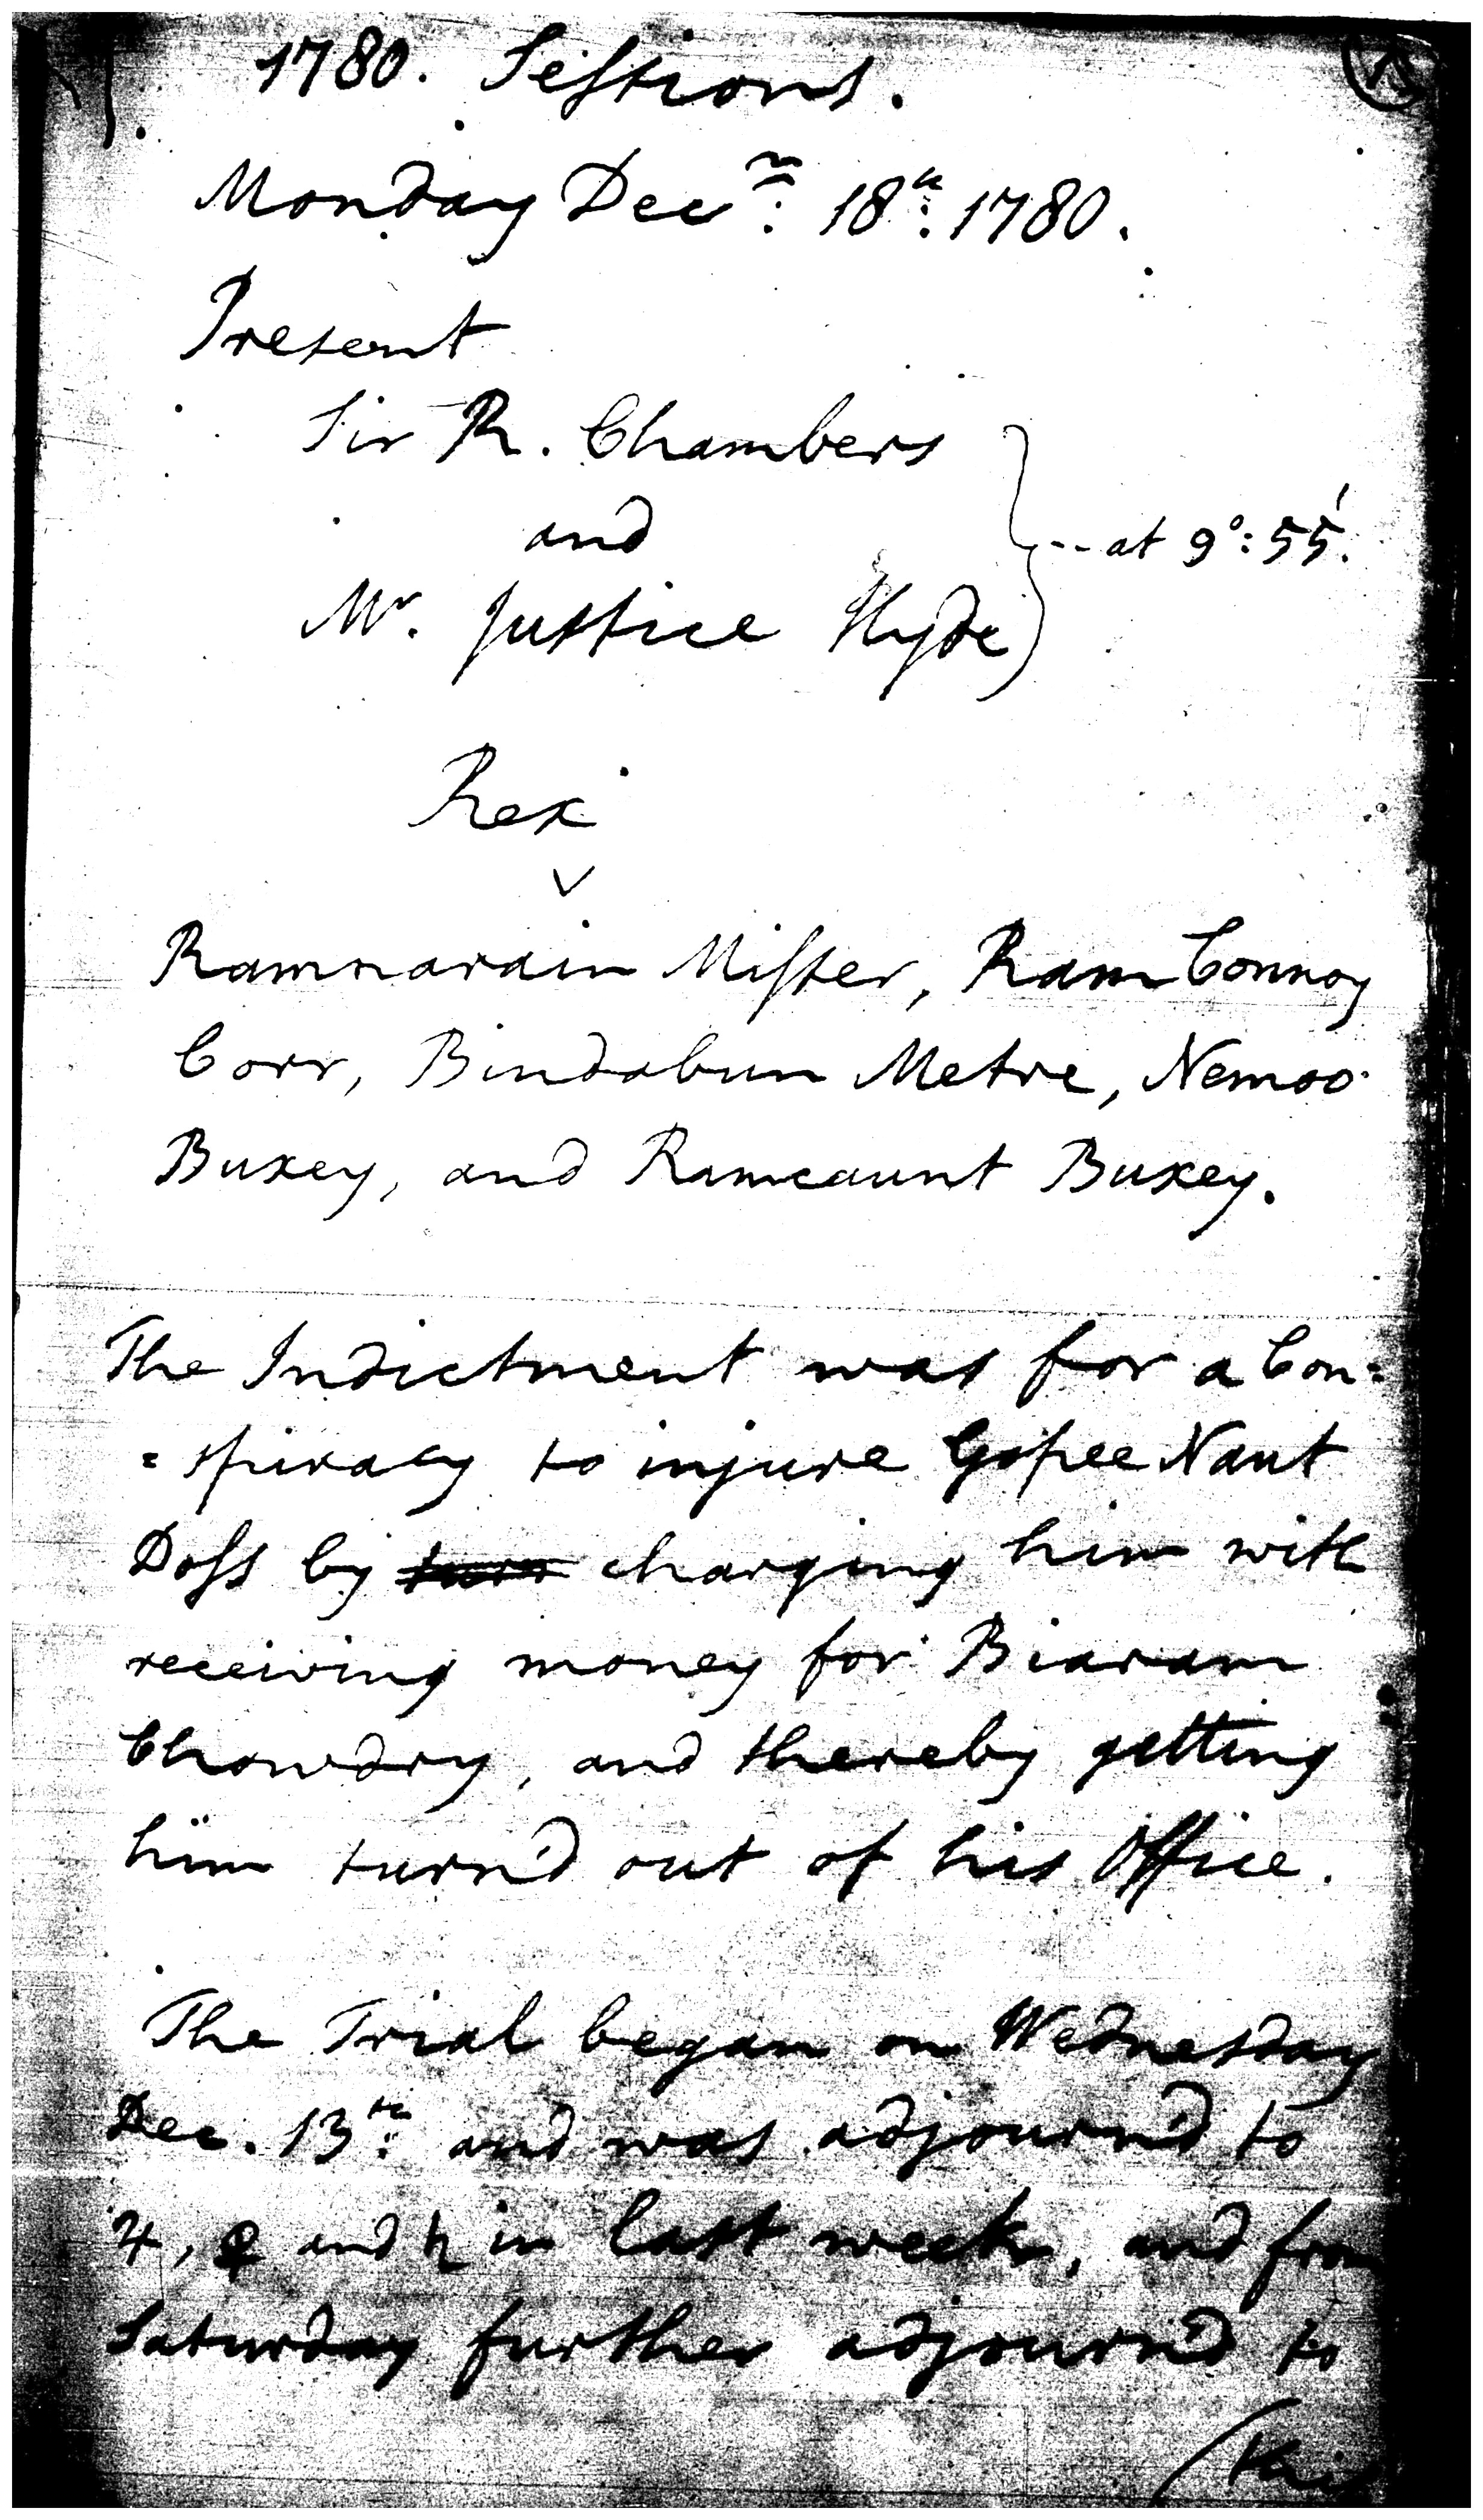 1780. Sessions.
Monday Decr. 18th. 1780.
Present
Sir R. Chambers
and
--at 9°: 55'.
Mr. Justice Hyde
Rex
v
Ramnarain Misser, Ram Connoy
Corr, Bindabun Metre, Nemoo
Buxey, and Ramcaunt Buxey.
The Indictment was for a Con=
=spiracy to injure Gopee Naut
Doss by charging him with
receiving money for Biaram
Chowdry, and thereby getting
him turn'd out of his Office.
The Trial began on Wednesday
Dec. 13th: and was adjourn'd to
♃, ♀ and ♄ in last week, and from
Saturday further adjourn'd to
(this